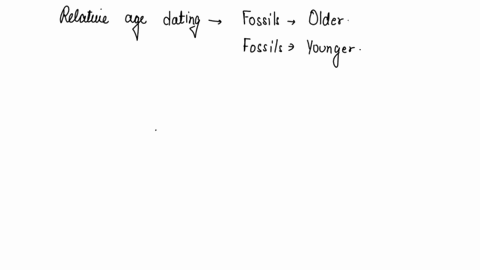 Relative age dating → Fossils → Older.
Fossils → Younger.